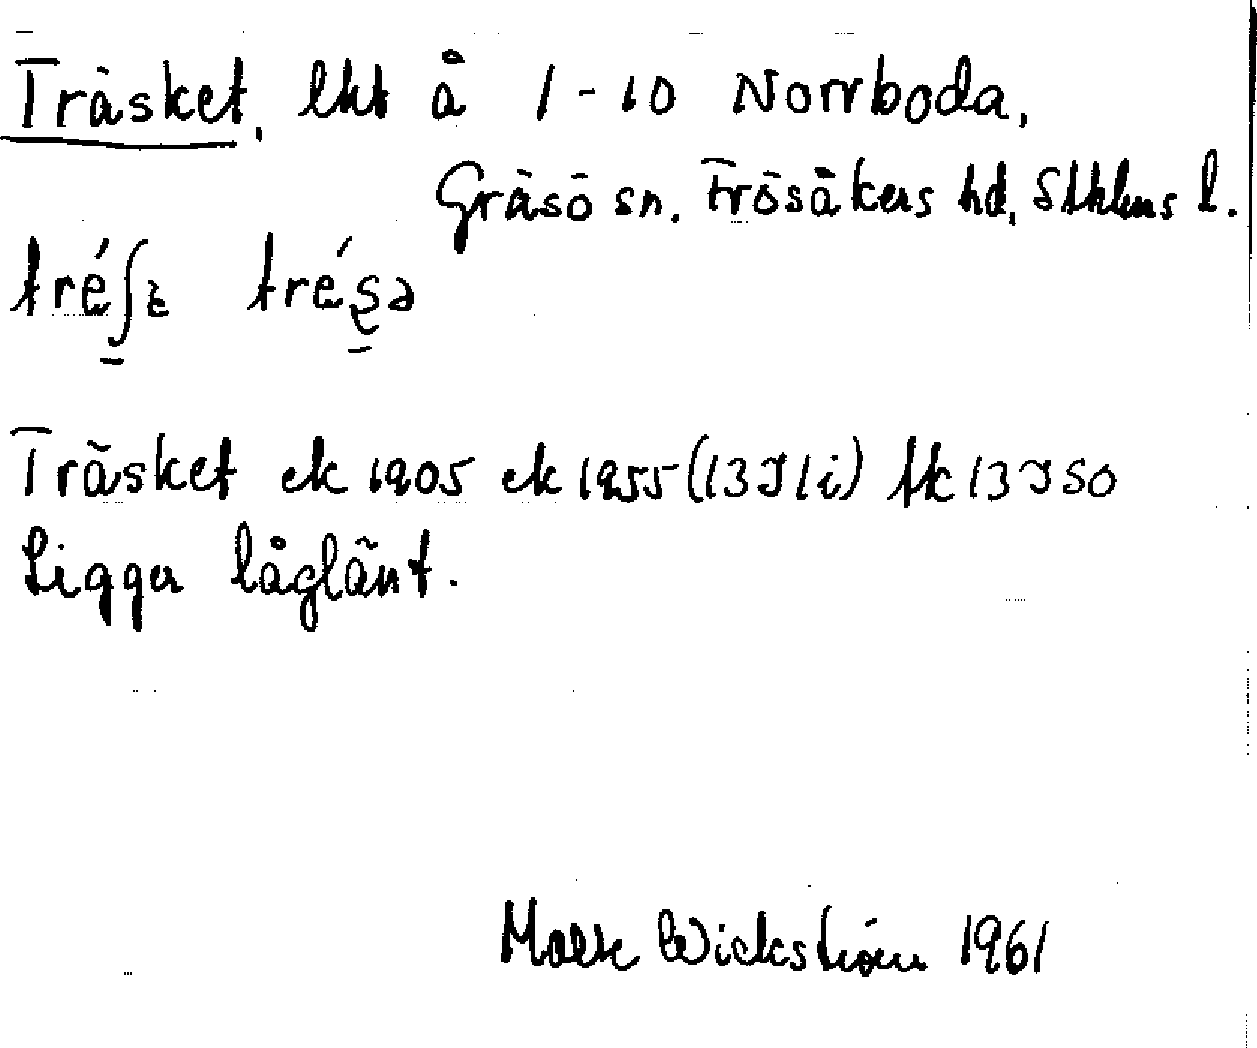 Träsket, lht å 1-10 Norrboda,
Gräsö sn. Frösåkers hd, Sthlms l.
Träsket ek 1905 ek 1955 (13J1i) fk 13J50
Ligger låglänt.
Wickström 1961